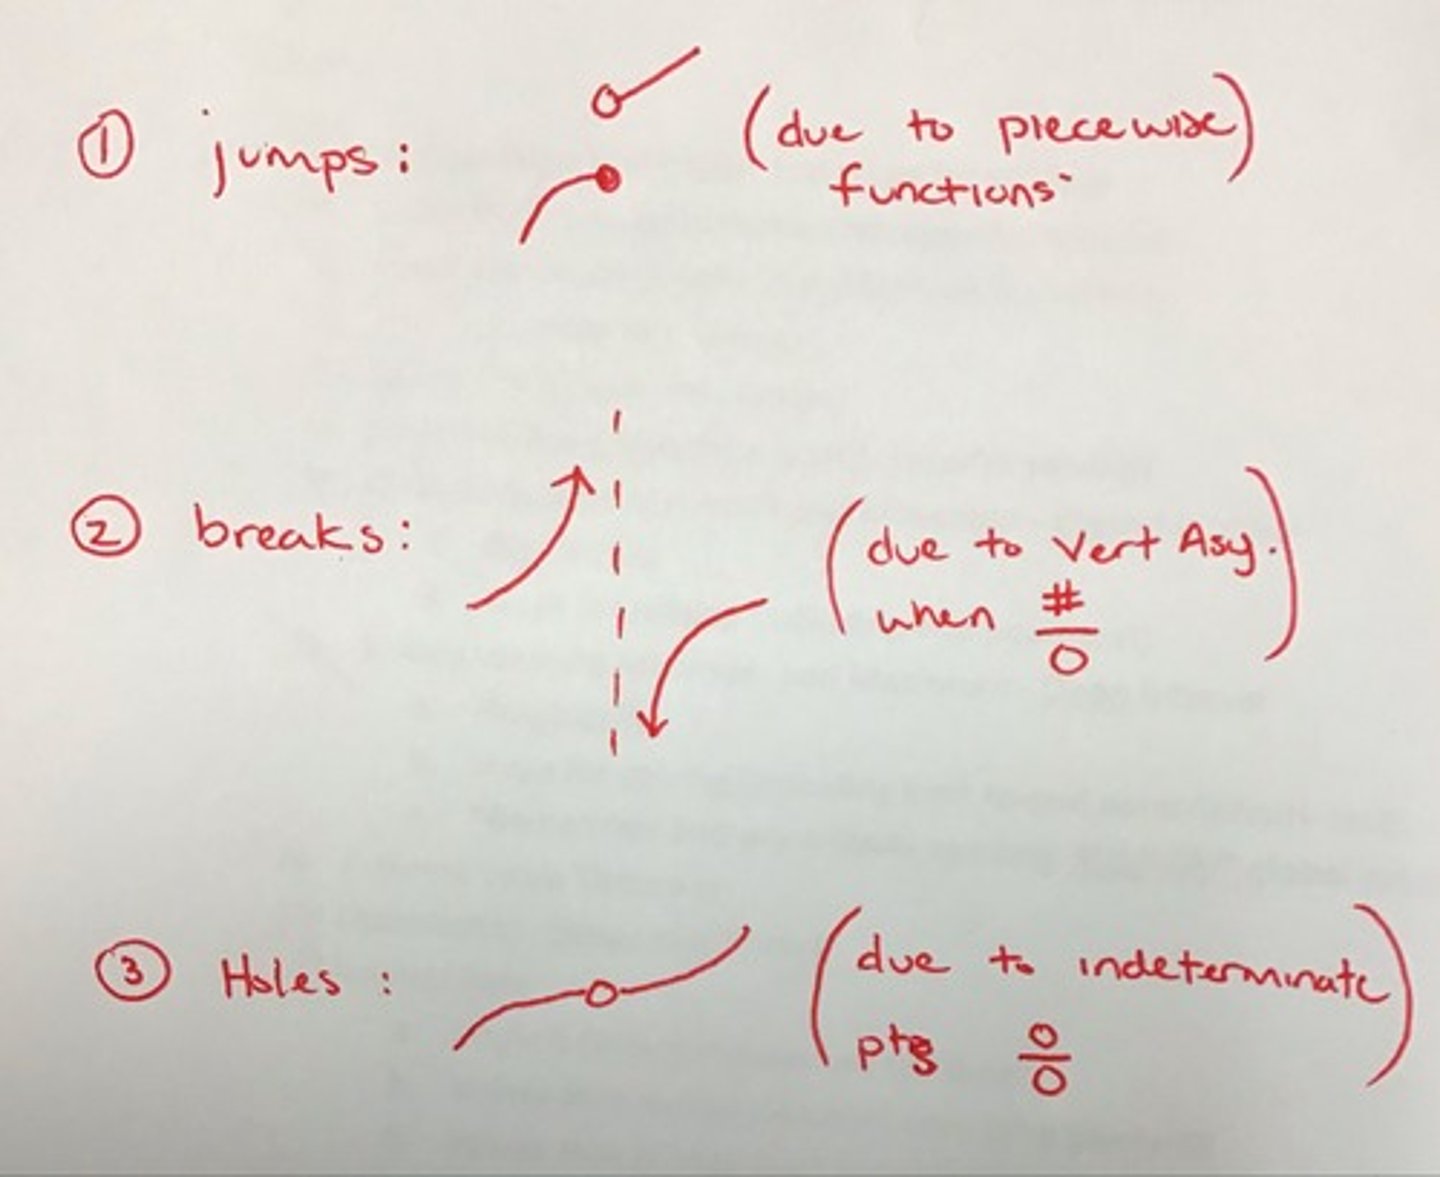 ① jumps: (due to piecewise)
functions
② breaks: (due to Vert Asy.
when #/0)
③ Holes : (due to indeterminate
pts 0/0)